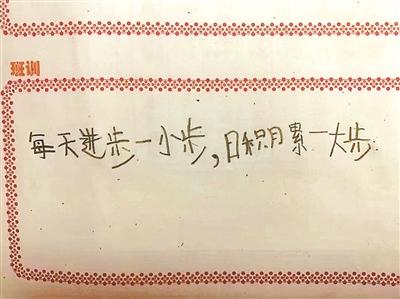 班训
每天进步一小步,日积月累一大步